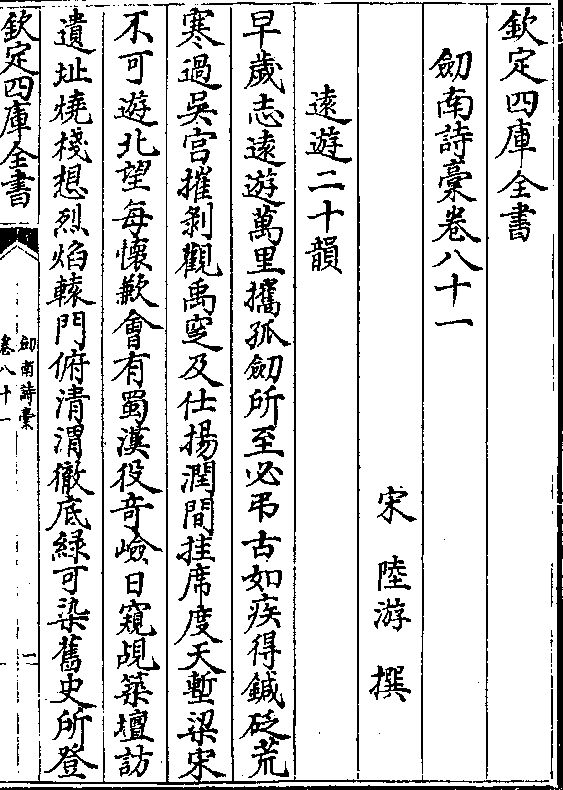 欽定四庫全書
劒南詩藁卷八十一
宋 陸游 撰
遠遊二十韻
早歲志遠遊萬里攜孤劒所至必弔古如疾得鍼砭荒
寒過吳宫摧剝觀禹穸及仕揚潤間挂席度天塹梁宋
不可遊北望每懷歉會有蜀漢役奇嶮日窺覘築壇訪
遺址燒棧想烈焰轅門俯清渭徹底綠可染舊史所登
欽定四庫全書
劒南詩藁
卷八十一
一